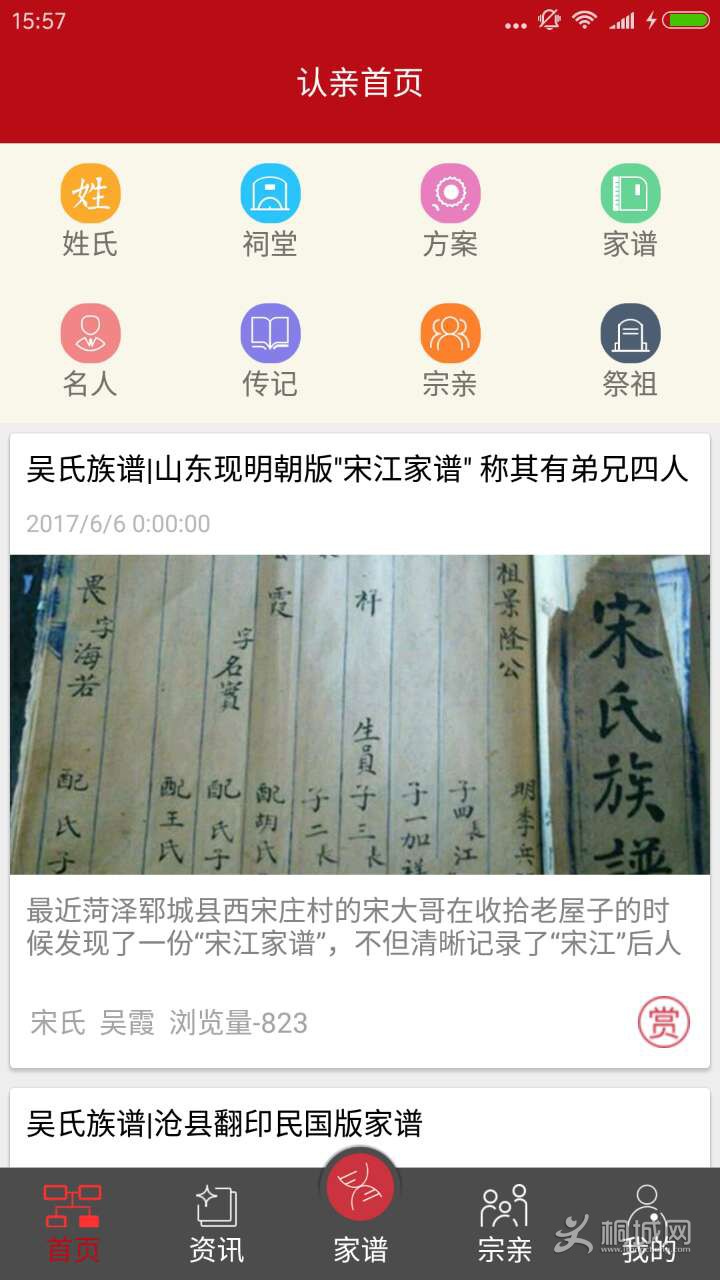 15:57
认亲首页
姓
姓氏 祠堂 方案 家谱
名人 传记 宗亲 祭祖
吴氏族谱|山东现明朝版"宋江家谱" 称其有弟兄四人
2017/6/6 0:00:00
宋氏族譜
祖景隆公
明季兵
子四長江
子一加祥
生員子三長
子二長
霞
配胡氏
字名實
配氏子
配王氏
畏字海若
配氏子
最近菏泽郓城县西宋庄村的宋大哥在收拾老屋子的时
候发现了一份“宋江家谱”，不但清晰记录了“宋江”后人
宋氏 吴霞 浏览量-823
赏
吴氏族谱|沧县翻印民国版家谱
首页 资讯 家谱 宗亲 我的
桐城网